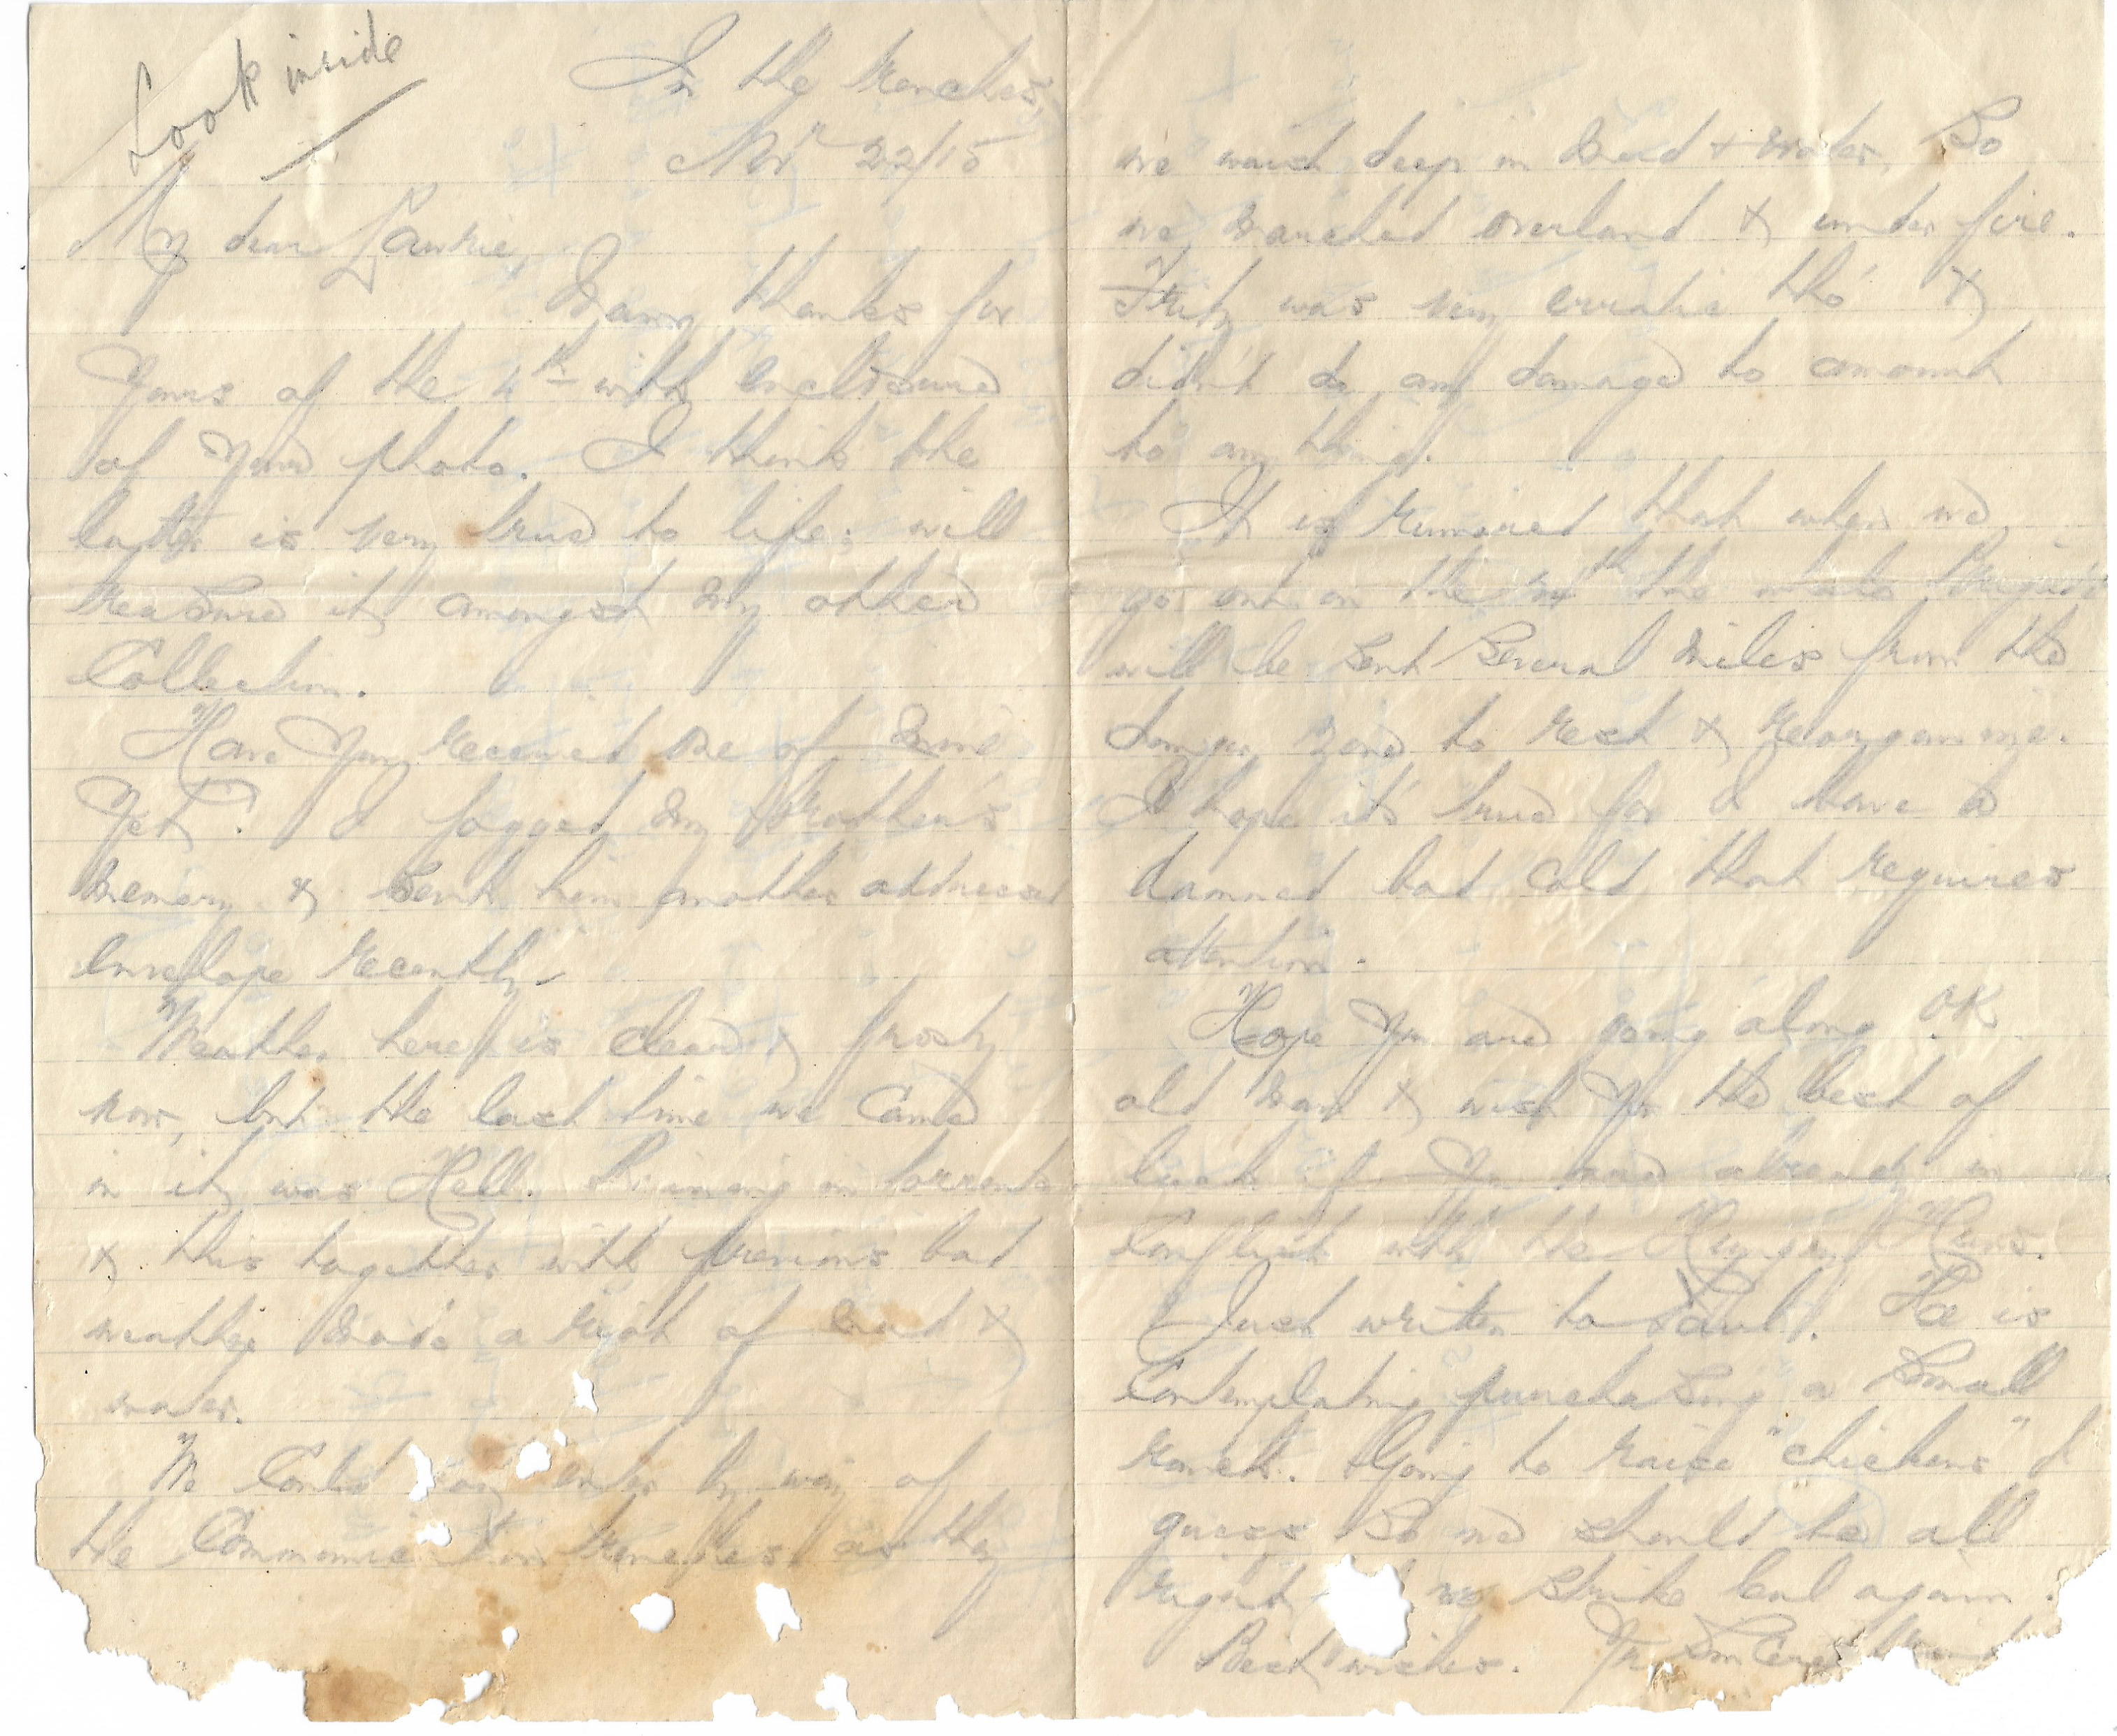 Look inside
In the trenches,
Nov 22/15
My dear Laurie,
Many thanks for
Yours of the 4th with enclosure
of your photo. I think the
latter is very true to life: will
treasure it amongst my other
Collection.
Have you received one of mine
Yet? I jogged my brother's
memory & sent him another addressed
envelope recently.
Weather here is clear & frosty
now, but the last time we came
in it was Hell. Raining in torrents
& this together with previous bad
weather made a riot of mud &
water.
We could not enter by way of
the Communication trenches as they
were waist deep in mud & water. So
we marched overland & under fire.
Fritz was very erratic tho' &
didn't do any damage to amount
to anything.
It is rumored that when we
go out on the the whole Brigade
will be sent several miles from the
danger zone to rest & reorganize.
I hope it's true for I have a
damned bad cold that requires
attention.
Hope you are going along OK
old man & wish you the best of
luck if you are already in
Conflict with the Huns.
Just written to Paul. He is
Contemplating purchasing a small
ranch. Going to raise "chickens" I
guess so we should be all
right we strike out again.
Best wishes. Yr Sincere friend